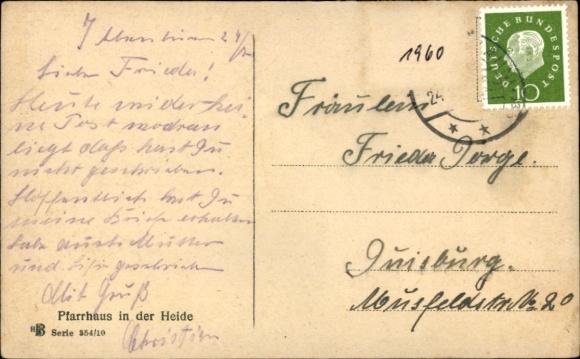 Liebe Frieda!
Heute wieder kei-
ne Post woran
liegt dass hast Du
nicht geschrieben.
Hoffentlich hast Du
meine Briefe erhalten
habe auch Mutter
und geschrieben
Mit Gruß
Christian
Pfarrhaus in der Heide
HB Serie 354/10
1960
DEUTSCHE BUNDESPOST
10
24.
Fräulein
Frieda Dorge.
Duisburg.
Musfeldstr. 20